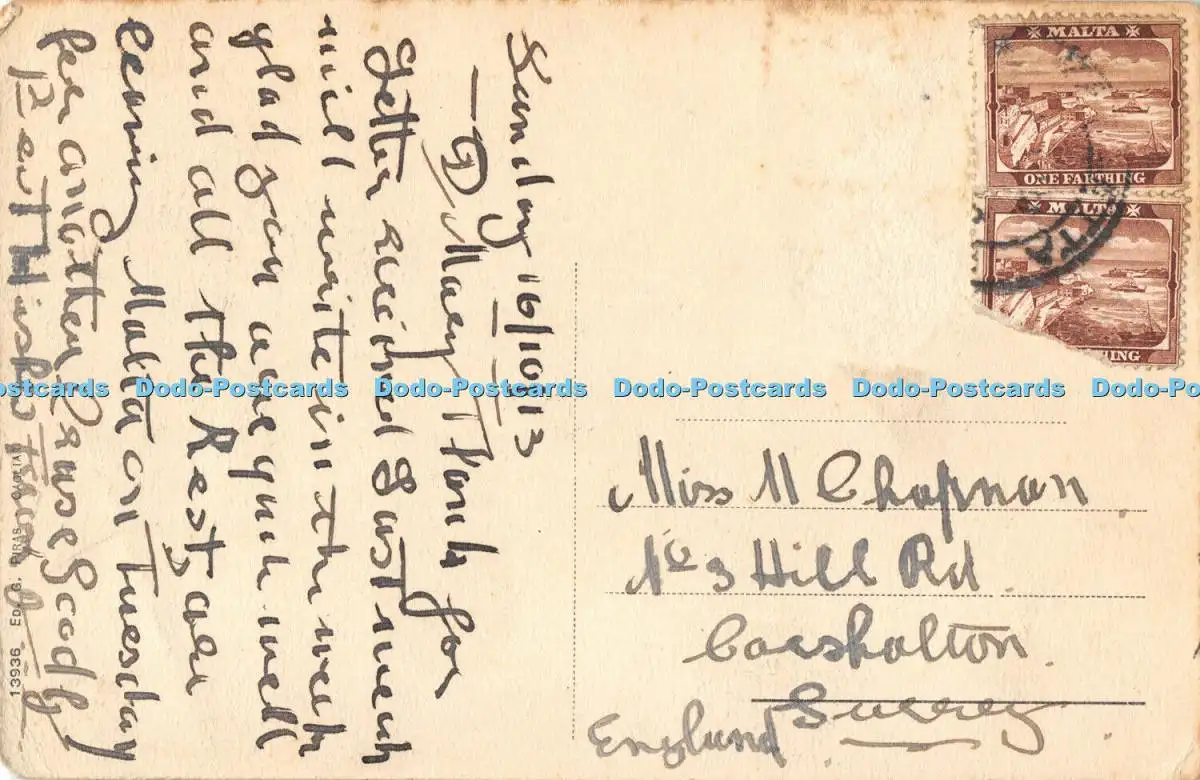 Sunday 16/10/13
D Mary Thanks for
Letter recieved Last week
will write in the week
glad you are quite well
and all the Rest, are
leaving Malta on Tuesday
for another Cruse Good by
Best Wishes
13936 Ed. G.
MALTA
ONE FARTHING
MALTA
THING
Dodo-Postcards Dodo-Postcards Dodo-Postcards Dodo-Postcards
Miss M Chapman
No 3 Hill Rd
Carshalton
Surrey
England